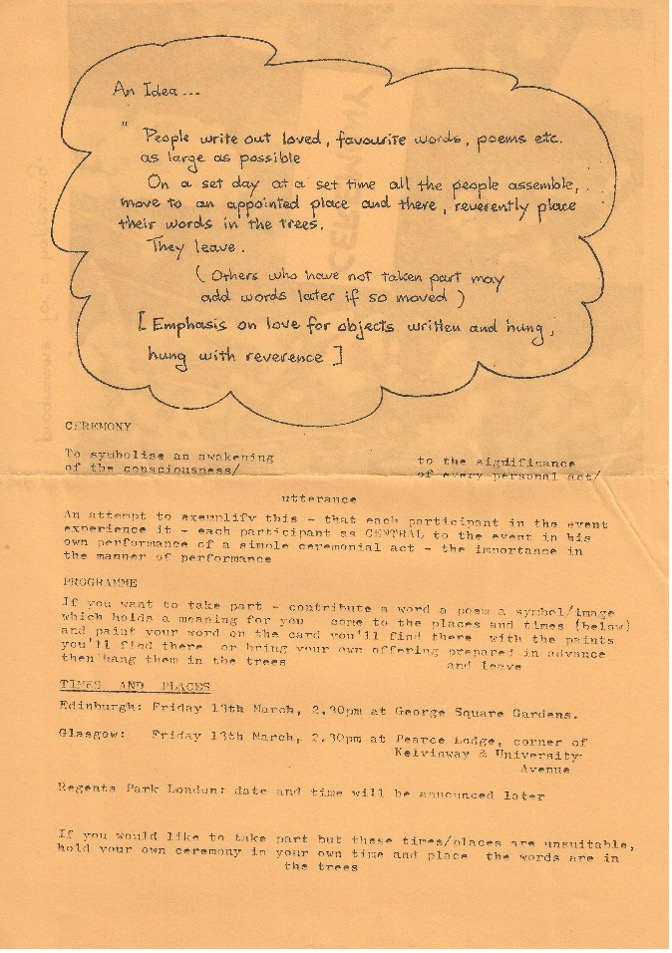 An Idea...
" People write out loved, favourite words, poems etc.
as large as possible
On a set day at a set time all the people assemble,
move to an appointed place and there, reverently place
their words in the trees.
They leave.
( Others who have not taken part may
add words later if so moved )
[ Emphasis on love for objects written and hung,
hung with reverence ]
CEREMONY
To symbolise an awakening to the significance
of the consciousness/ of every personal act/
utterance
An attempt to exemplify this - that each participant in the event
experience it - each participant as CENTRAL to the event in his
own performance of a simple ceremonial act - the importance in
the manner of performance
PROGRAMME
If you want to take part - contribute a word a poem a symbol/image
which holds a meaning for you come to the places and times (below)
and paint your word on the card you'll find there with the paints
you'll find there or bring your own offering prepared in advance
then hang them in the trees and leave
TIMES AND PLACES
Edinburgh: Friday 13th March, 2.30pm at George Square Gardens.
Glasgow: Friday 13th March, 2.30pm at Pearce Lodge, corner of
Kelvinway & University
Avenue
Regents Park London: date and time will be announced later
If you would like to take part but these times/places are unsuitable,
hold your own ceremony in your own time and place the words are in
the trees